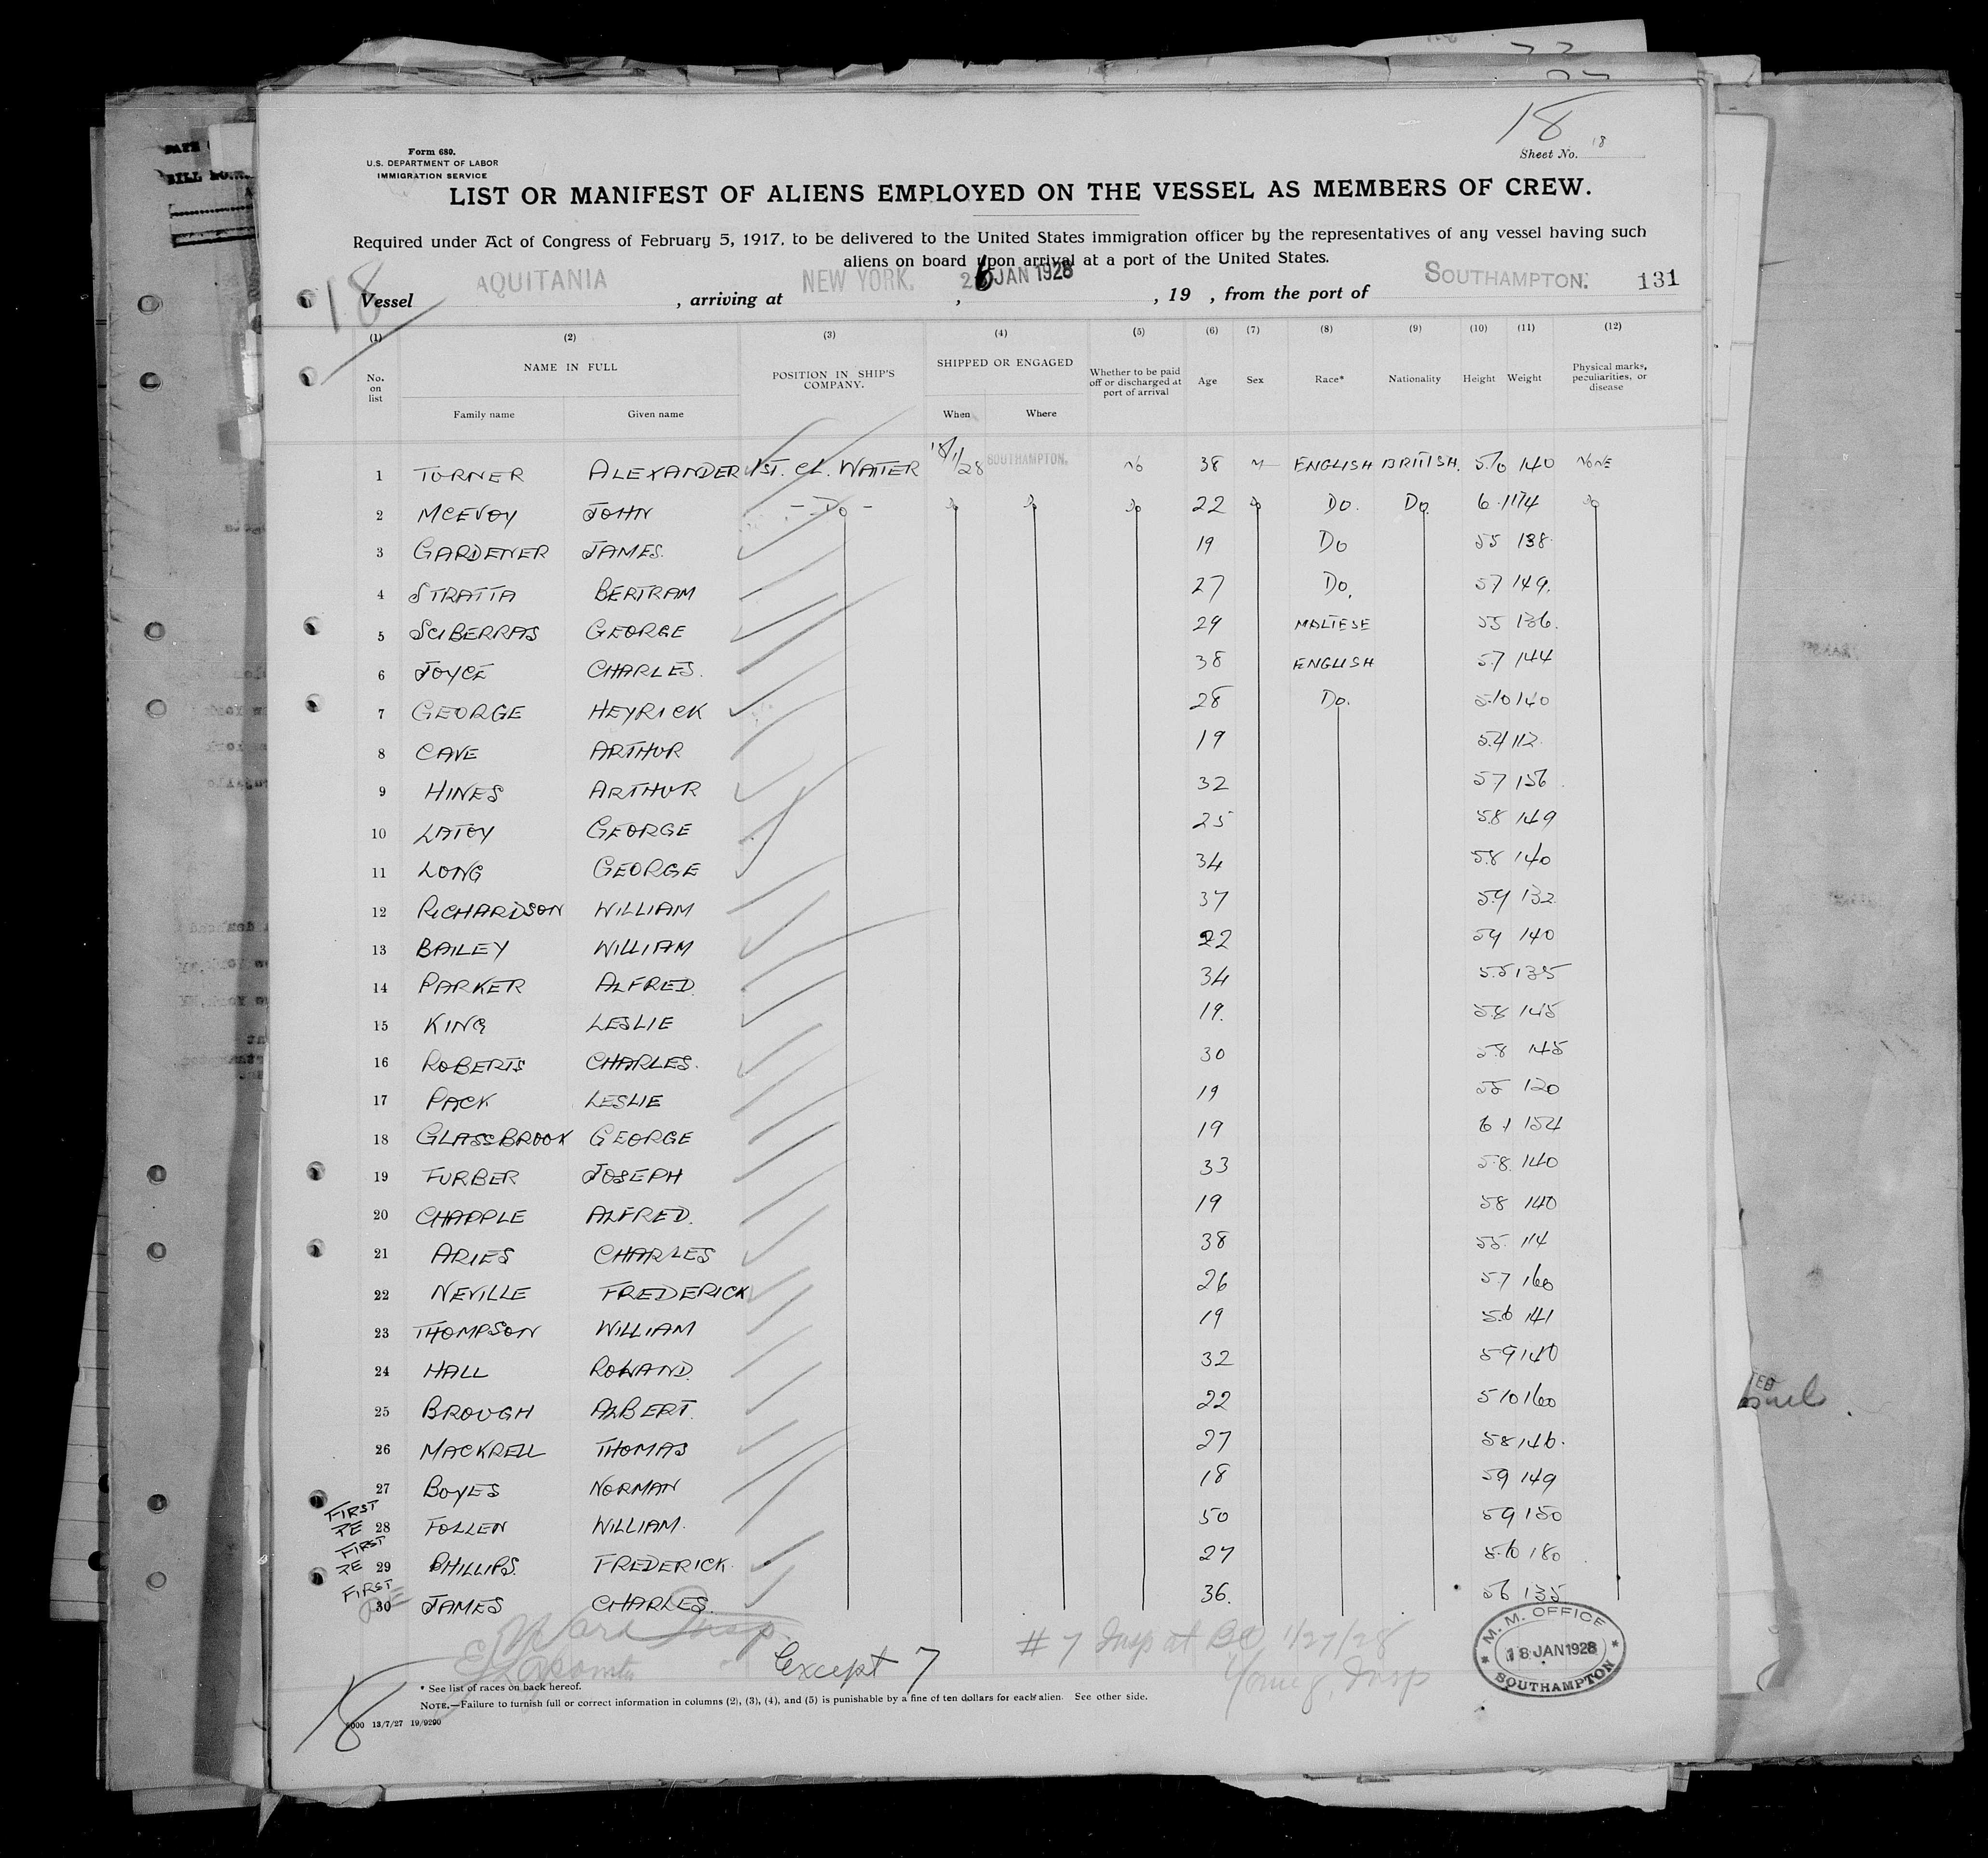 18
Form 680.
U.S. DEPARTMENT OF LABOR
IMMIGRATION SERVICE
Sheet No. 18
LIST OR MANIFEST OF ALIENS EMPLOYED ON THE VESSEL AS MEMBERS OF CREW.
Required under Act of Congress of February 5, 1917, to be delivered to the United States immigration officer by the representatives of any vessel having such
aliens on board upon arrival at a port of the United States.
18
Vessel AQUITANIA, arriving at NEW YORK. , 26 JAN 1928, 19 , from the port of SOUTHAMPTON. 131
(1) (2) (3) (4) (5) (6) (7) (8) (9) (10) (11) (12)
No. on list NAME IN FULL POSITION IN SHIP'S COMPANY. SHIPPED OR ENGAGED Whether to be paid off or discharged at port of arrival Age Sex Race* Nationality Height Weight Physical marks, peculiarities, or disease
Family name Given name When Where
1 TURNER ALEXANDER 1ST. CL. WAITER 18/1/28 SOUTHAMPTON. NO 38 M ENGLISH BRITISH. 5.10 140 NONE
2 MCEVOY JOHN - Do - Do Do Do 22 Do Do. Do. 6.1 174 Do
3 GARDENER JAMES. 19 Do 55 138
4 STRATTA BERTRAM 27 Do. 57 149.
5 SCIBERRAS GEORGE 29 MALTESE 55 136.
6 JOYCE CHARLES. 38 ENGLISH 5.7 144
7 GEORGE HEYRICK 28 Do. 5.10 140
8 CAVE ARTHUR 19 5.4 112.
9 HINES ARTHUR 32 57 156
10 LATOY GEORGE 25 5.8 149
11 LONG GEORGE 34 5.8 140
12 RICHARDSON WILLIAM 37 5.9 132
13 BAILEY WILLIAM 22 59 140
14 PARKER ALFRED. 34 5.5 135
15 KING LESLIE 19. 5.8 145
16 ROBERTS CHARLES. 30 5.8 145
17 PACK LESLIE 19 55 120
18 GLASSBROOK GEORGE 19 6.1 154
19 FURBER JOSEPH 33 5.8. 140
20 CHAPPLE ALFRED. 19 58 140
21 ARIES CHARLES 38 55. 114
22 NEVILLE FREDERICK 26 5.7 160
23 THOMPSON WILLIAM 19 5.6 141
24 HALL ROWAND. 32 59 140
25 BROUGH ALBERT. 22 5 10 160
26 MACKRELL THOMAS 27 58 146.
27 BOYES NORMAN 18 59 149
FIRST
28 FOLLEN WILLIAM. 50 59 150
FIRST
29 PHILLIPS. FREDERICK. 27 5.10 180
FIRST
30 JAMES CHARLES. 36. 56 135
Ward Insp.
Except 7
# 7 Insp at BO 1/27/28
Young, Insp
M. M. OFFICE
18 JAN 1928
SOUTHAMPTON
* See list of races on back hereof.
NOTE.—Failure to furnish full or correct information in columns (2), (3), (4), and (5) is punishable by a fine of ten dollars for each alien. See other side.
18
5000 13/7/27 19/9290